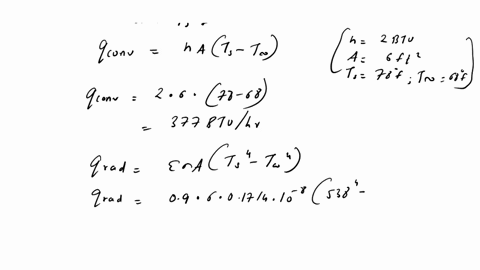 q conv = hA(Ts - T∞)
( h = 2 BTU
A = 6 ft²
Ts = 78°f ; T∞ = 68°f )
q conv = 2 · 6 · (78-68)
= 377 BTU/hr
q rad = εσA(Ts⁴ - Tw⁴)
q rad = 0.9 · 6 · 0.1714 · 10⁻⁸ (538⁴ -